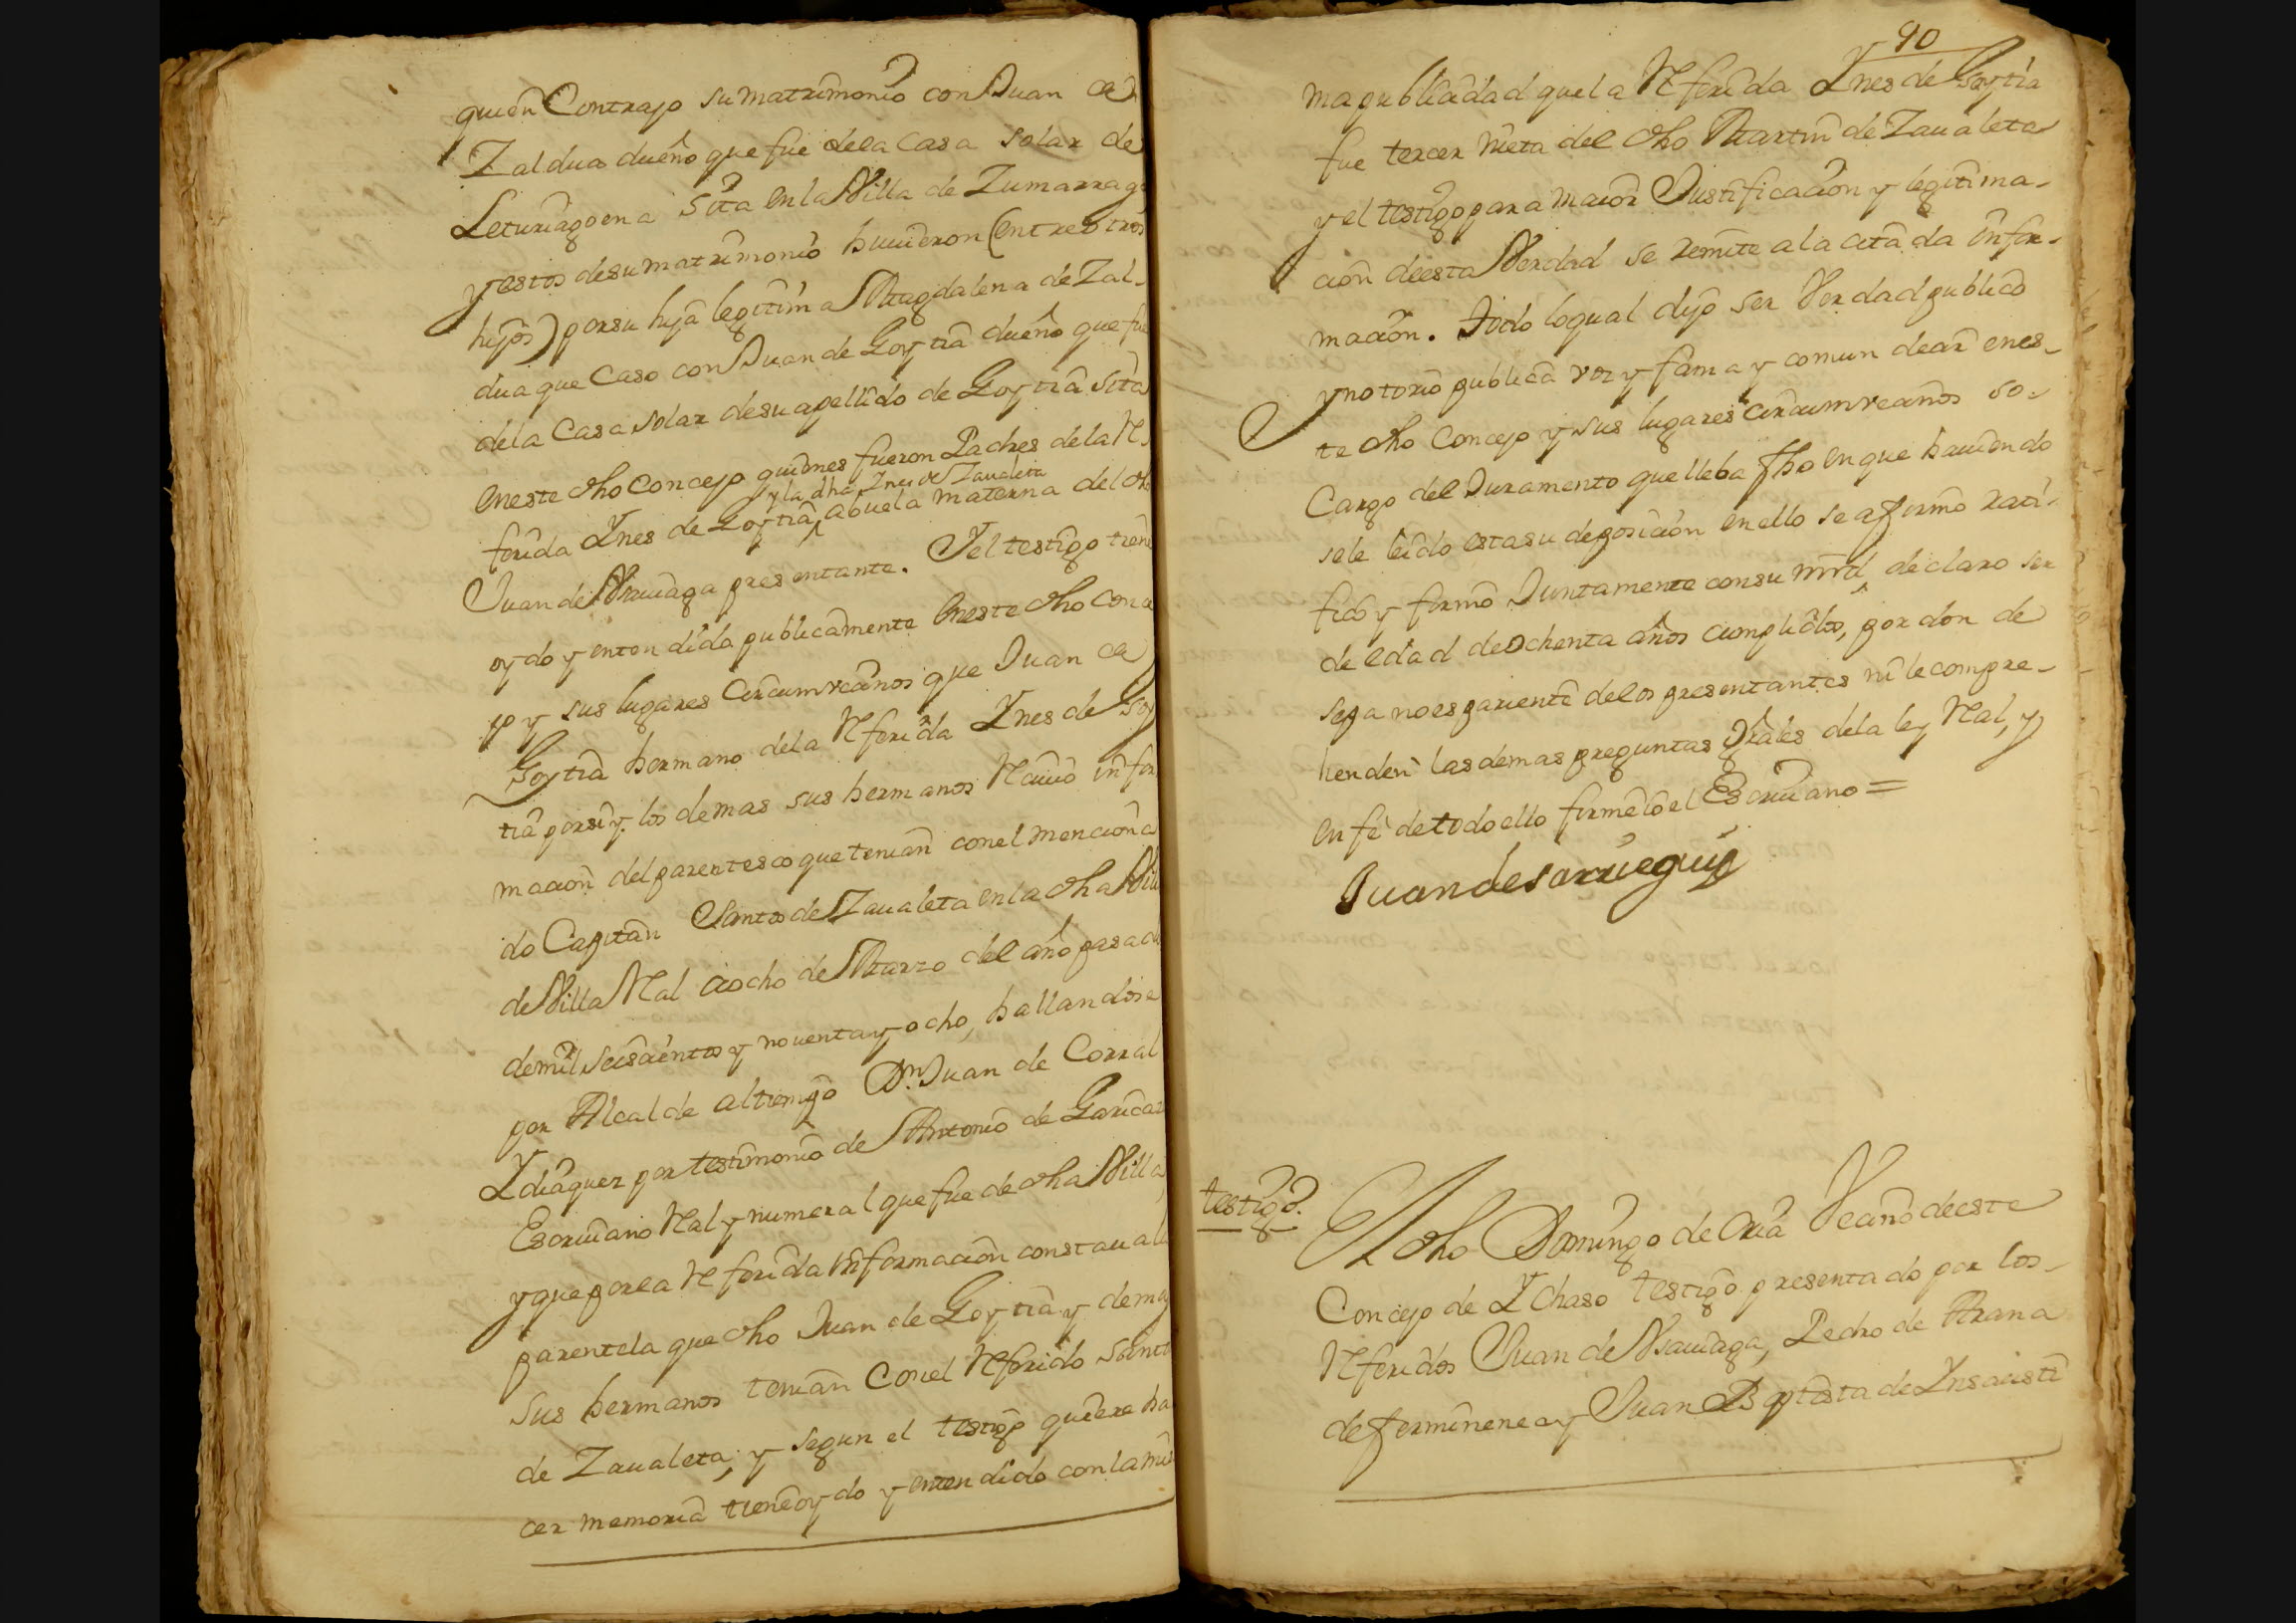 quien Contrajo su matrimonio con Juan de
Zaldua dueño que fue dela Casa solar de
Leturiagoena sita en la Villa de Zumarraga
y estos de su matrimonio huuieron (entre otros
hijos) por su hija legitima Magdalena de Zal-
dua que Caso con Juan de Goytia dueño que fue
dela Casa solar de su apellido de Goytia sita
en este dho Concejo quienes fueron Padres de la Re
y la dha Ines de Zaualeta
ferida Ynes de Goytia abuela materna del dho
Juan de presentante. Y el testigo tiene
oydo y entendido publicamente en este dho Conce
jo y sus lugares Circumvecinos que Juan de
Goytia hermano dela Referida Ynes de Goy
tia por si y los demas sus hermanos Reciuio infor
macion del parentesco que tenian con el menciona
do Capitan Santos de Zaualeta en la dha Villa
de Villa Real a ocho de Marzo del año pasado
de mil seiscientos y nouenta y ocho, hallandose
por Alcalde al tiempo Dn. Juan de Corral
Ydiaquez por testimonio de Antonio de
Escriuano Real y numeral que fue de dha Villa
y que por la Referida informacion constaua la
parentela que dho Juan de Goytia y demas
sus hermanos tenian con el Referido Santos
de Zaualeta; y segun el testigo quiere ha
cer memoria tiene oydo y entendido con la mis
90
ma publicidad que la Referida Ynes de Goytia
fue tercer nieta del dho Martin de Zaualeta
y el testigo para maior Justificacion y legitima-
cion de esta Verdad se remite a la citada infor-
macion. Todo lo qual dijo ser Verdad publico
y notorio publica voz y fama y comun decir en es-
te dho Concejo y sus lugares circumvecinos so-
Cargo del Juramento que lleba fho en que hauiendo
sele leido esta su deposicion en ello se afirmo rati-
fico y firmo Juntamente con su mrd, declaro ser
de edad de ochenta años cumplidos, por don de
sepa no es pariente de los presentantes ni le compre-
henden las demas preguntas grales dela ley Real, y
en fe de todo ello firme io el Escriuano =
Juan de sarriegui
testigo.
El dho Domingo de Oria Vecino de este
Concejo de Ychaso testigo presentado por los-
Referidos Juan de Pedro de Arana
de y Juan Bptista de Insausti